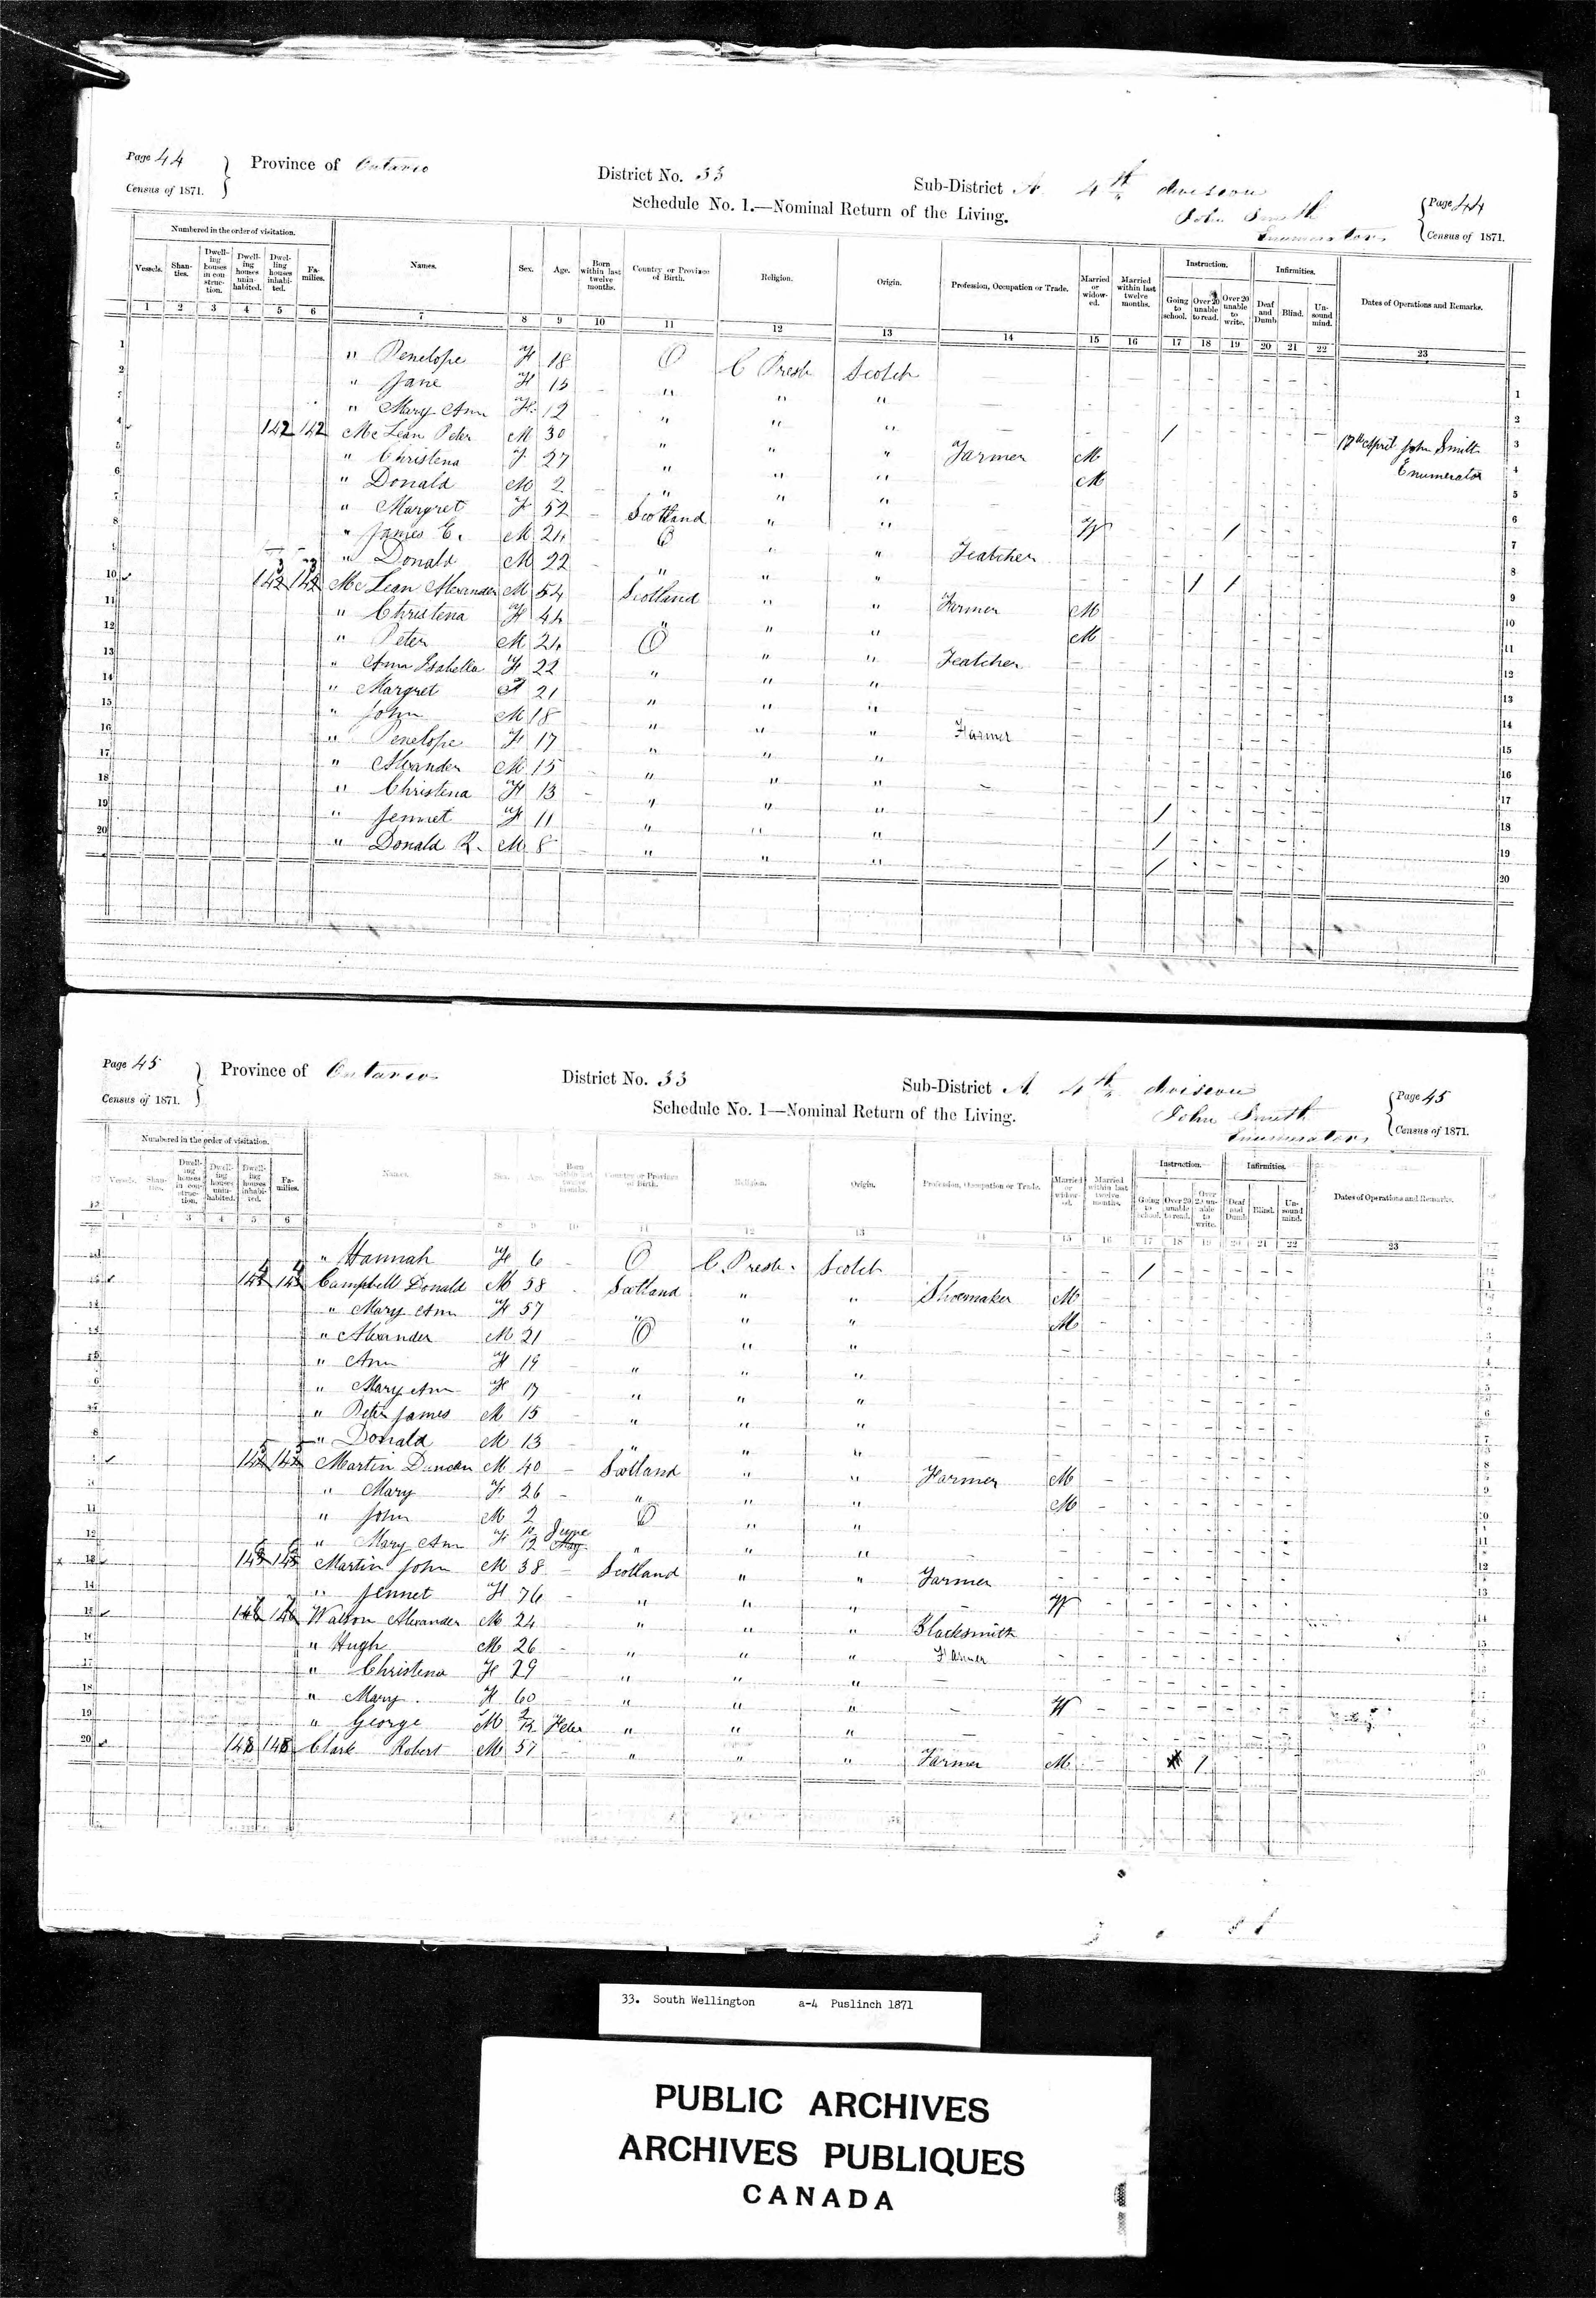 Page 44 } Province of Ontario District No. 33 Sub-District A. 4th division { Page 44
Census of 1871. Schedule No. 1.—Nominal Return of the Living. John Smith Enumerator { Census of 1871.
Numbered in the order of visitation. Names. Sex. Age. Born within last twelve months. Country or Province of Birth. Religion. Origin. Profession, Occupation or Trade. Married or widowed. Married within last twelve months. Instruction. Infirmities. Dates of Operations and Remarks.
Vessels. Shanties. Dwelling houses in construction. Dwelling houses uninhabited. Dwelling houses inhabited. Families. Going to school. Over 20 unable to read. Over 20 unable to write. Deaf and Dumb. Blind. Unsound mind.
1 2 3 4 5 6 7 8 9 10 11 12 13 14 15 16 17 18 19 20 21 22 23
1 " Penelope F 18 O C Presb Scotch 1
2 " Jane F 15 " " " 2
3 " Mary Ann F 12 " " " / 3
4 142 142 McLean Peter M 30 " " " Farmer M 17th April John Smith Enumerator 4
5 " Christena F 27 " " " M 5
6 " Donald M 2 " " " 6
7 " Margret F 52 Scotland " " W / 7
8 " James E. M 24 O " " Teatcher 8
9 " Donald M 22 " " " / / 9
10 143 143 McLean Alexander M 54 Scotland " " Farmer M 10
11 " Christena F 44 " " " M 11
12 " Peter M 24 O " " Teatcher 12
13 " Anna Isabella F 22 " " " 13
14 " Margret F 21 " " " 14
15 " John M 18 " " " Farmer 15
16 " Penelope F 17 " " " 16
17 " Alexander M 15 " " " 17
18 " Christena F 13 " " " / 18
19 " Jennet F 11 " " " / 19
20 " Donald R. M 8 " " " / 20
Page 45 } Province of Ontario District No. 33 Sub-District A. 4th division { Page 45
Census of 1871. Schedule No. 1—Nominal Return of the Living. John Smith Enumerator { Census of 1871.
Numbered in the order of visitation. Names. Sex. Age. Born within last twelve months. Country or Province of Birth. Religion. Origin. Profession, Occupation or Trade. Married or widowed. Married within last twelve months. Instruction. Infirmities. Dates of Operations and Remarks.
Vessels. Shanties. Dwelling houses in construction. Dwelling houses uninhabited. Dwelling houses inhabited. Families. Going to school. Over 20 unable to read. Over 20 unable to write. Deaf and Dumb. Blind. Unsound mind.
1 2 3 4 5 6 7 8 9 10 11 12 13 14 15 16 17 18 19 20 21 22 23
" Hannah F 6 O C. Presb. Scotch /
144 144 Campbell Donald M 58 Scotland " " Shoemaker M
" Mary Ann F 57 " " " M
" Alexander M 21 O " "
" Ann F 19 " " "
6 " Mary Ann F 17 " " "
" Peter James M 15 " " "
8 " Donald M 13 " " "
145 145 Martin Duncan M 40 Scotland " " Farmer M
" Mary F 26 " " " M
11 " John M 2 O " "
12 " Mary Ann F 10/12 June " " "
13 146 146 Martin John M 38 Scotland " " Farmer
14 " Jennet F 76 " " " W
15 147 147 Watson Alexander M 24 " " " Blacksmith
16 " Hugh M 26 " " " Farmer
17 " Christena F 29 " " "
18 " Mary F 60 " " " W
19 " George M 2/12 Feb " " "
20 148 148 Clark Robert M 57 " " " Farmer M 1
33. South Wellington a-4 Puslinch 1871
PUBLIC ARCHIVES
ARCHIVES PUBLIQUES
CANADA